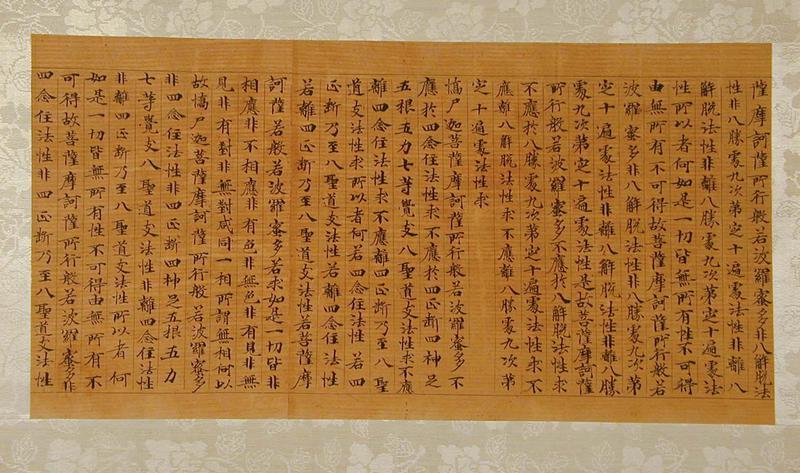 薩摩訶薩所行般若波羅蜜多非八解脫法
性非八勝處九次第定十遍處法性非離八
解脫法性非離八勝處九次第定十遍處法
性所以者何如是一切皆無所有性不可得
由無所有不可得故菩薩摩訶薩所行般若
波羅蜜多非八解脫法性非八勝處九次第
定十遍處法性非離八解脫法性非離八勝
處九次第定十遍處法性是故菩薩摩訶薩
所行般若波羅蜜多不應於八解脫法性求
不應於八勝處九次第定十遍處法性求不
應離八解脫法性求不應離八勝處九次第
定十遍處法性求
憍尸迦菩薩摩訶薩所行般若波羅蜜多不
應於四念住法性求不應於四正斷四神足
五根五力七等覺支八聖道支法性求不應
離四念住法性求不應離四正斷乃至八聖
道支法性求所以者何若四念住法性若四
正斷乃至八聖道支法性若離四念住法性
若離四正斷乃至八聖道支法性若菩薩摩
訶薩若般若波羅蜜多若求如是一切皆非
相應非不相應非有色非無色非有見非無
見非有對非無對咸同一相所謂無相何以
故憍尸迦菩薩摩訶薩所行般若波羅蜜多
非四念住法性非四正斷四神足五根五力
七等覺支八聖道支法性非離四念住法性
非離四正斷乃至八聖道支法性所以者何
如是一切皆無所有性不可得由無所有不
可得故菩薩摩訶薩所行般若波羅蜜多非
四念住法性非四正斷乃至八聖道支法性